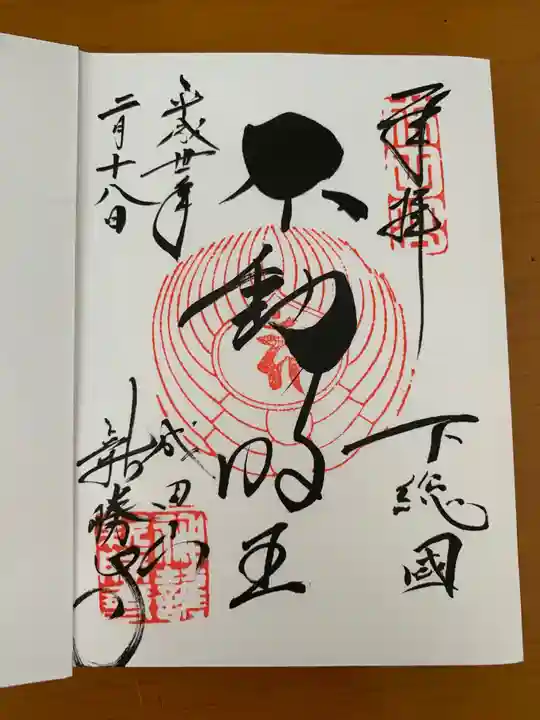 奉拝
下総國
不動明王
平成丗年
二月十八日
成田山
新勝寺